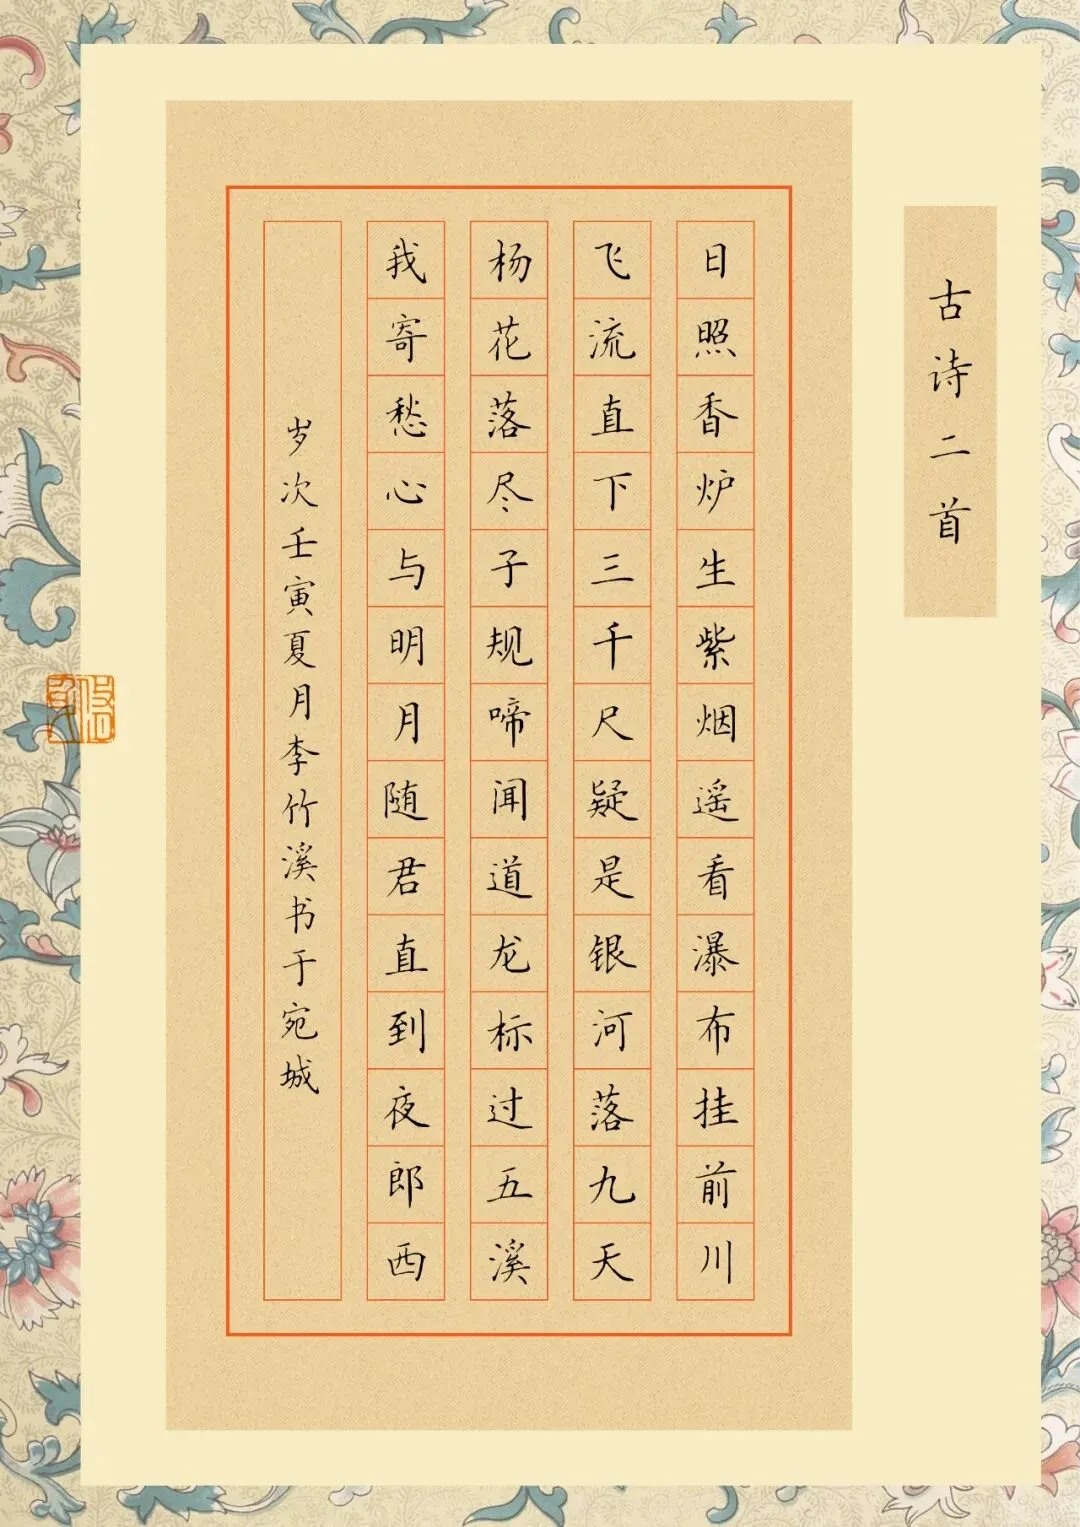 古诗二首
日照香炉生紫烟遥看瀑布挂前川
飞流直下三千尺疑是银河落九天
杨花落尽子规啼闻道龙标过五溪
我寄愁心与明月随君直到夜郎西
岁次壬寅夏月李竹溪书于宛城